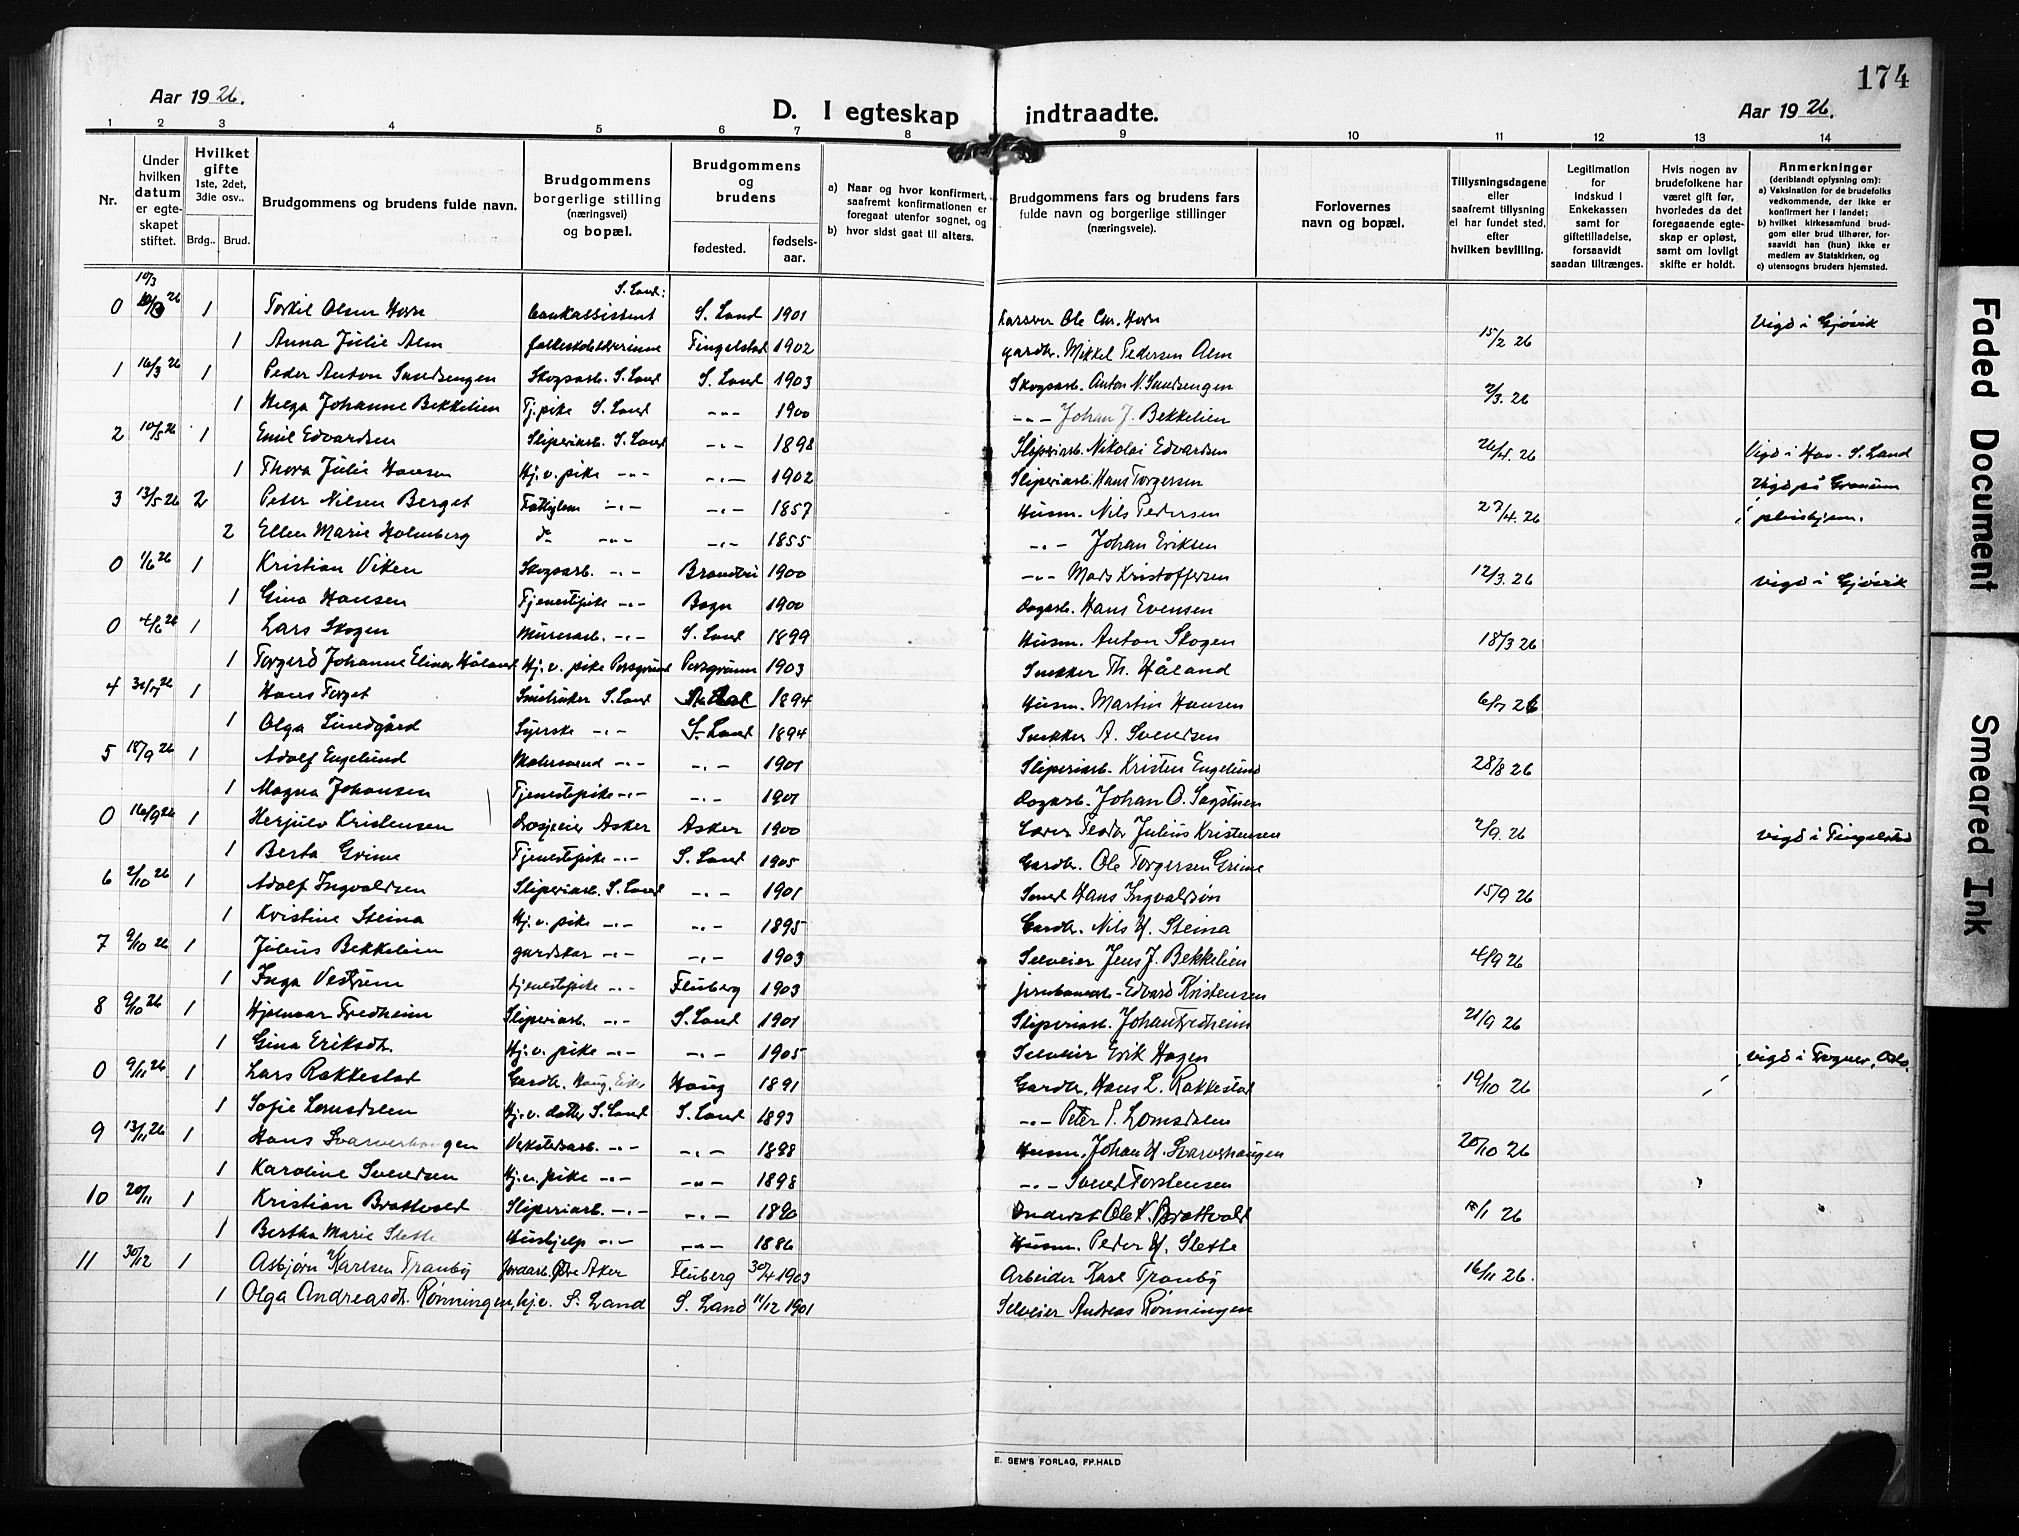 174
Aar 1926.
D. I egteskap indtraadte.
Aar 1926.
1 2 3 4 5 6 7 8 9 10 11 12 13 14
Nr.
Under hvilken datum er egteskapet stiftet.
Hvilket gifte 1ste, 2det, 3die osv..
Brdg.. Brud.
Brudgommens og brudens fulde navn.
Brudgommens borgerlige stilling (næringsvei) og bopæl.
Brudgommens og brudens
fødested. fødselsaar.
a) Naar og hvor konfirmert, saafremt konfirmationen er foregaat utenfor sognet, og
b) hvor sidst gaat til alters.
Brudgommens fars og brudens fars fulde navn og borgerlige stillinger (næringsveie).
Forlovernes navn og bopæl.
Tillysningsdagene eller saafremt tillysning ei har fundet sted, efter hvilken bevilling.
Legitimation for indskud i Enkekassen samt for giftetilladelse, forsaavidt saadan tiltrænges.
Hvis nogen av brudefolkene har været gift før, hvorledes da det foregaaende egteskap er opløst, samt om lovligt skifte er holdt.
Anmerkninger (deriblandt oplysning om):
a) Vaksination for de brudefolks vedkommende, der ikke er konfirmert her i landet;
b) hvilket kirkesamfund brudgom eller brud tilhører, forsaavidt han (hun) ikke er medlem av Statskirken, og
c) utensogns bruders hjemsted.
0 10/3 26 1 Torkil Olsen Horn bankassistent S. Land: S. Land 1901 Ole Chr. Horn 15/2 26 Vigd i Gjøvik
1 Anna Julie Alm folkeskolelærerinne Tingelstad 1902 gardbr. Mikkel Pedersen Alm
1 16/3 26 1 Peder Anton Sandsengen Skogsarb. S. Land S. Land 1903 Skogsarb. Anton N. Sandsengen 2/3. 26
1 Helga Johanne Bekkelien Tj. pike S. Land -"- 1900 -"- Johan J. Bekkelien
2 10/5 26 1 Emil Edvardsen Sliperiarb. S. Land -"- 1898 Sliperiarb. Nikolai Edvardsen 26/4. 26 Vigd i Hov. S. Land
1 Thora Julie Hansen Hj. v. pike -"- -"- 1902 Sliperiarb. Hans Torgersen
3 13/5 26 2 Peter Nilsen Berget Fattiglem -"- -"- 1857 Husm. Nils Pedersen 27/4. 26 Vigd på Granum pleiehjem.
2 Ellen Marie Holmberg do -"- -"- 1855 -"- Johan Eriksen
0 1/6 26 1 Kristian Viken Skogsarb. -"- Brandbu 1900 -"- Mads Kristoffersen 12/3. 26 Vigd i Gjøvik
1 Gina Hansen Tjenestepike -"- Bagn 1900 Dagarb. Hans Evensen
0 4/6 26 1 Lars Skogen Murerarb. -"- S. Land 1899 Husm. Anton Skogen 18/3 26
1 Torgerd Johanne Elina Håland Hj. v. pike Porsgrund Porsgrunn 1903 Snekker Th. Håland
4 31/7 26 1 Hans Torget S. Land 1894 Husm. Martin Hansen 6/7 26
1 Olga Lundgård Syerske -"- S. Land 1894 Snekker A. Svendsen
5 18/9 26 1 Adolf Engelund Malersvend -"- -"- 1901 Sliperiarb. Kristen Engelund 28/8 26
1 Magna Johansen Tjenestepike -"- -"- 1901 Dagarb. Johan O. Sagstuen
0 16/9 26 1 Herjulv Kristensen Asker Asker 1900 Teodor Julius Kristensen 2/9. 26 Vigd i Tingelstad
1 Berta Grime Tjenestepike -"- S. Land 1905 Gardbr. Ole Torgersen Grime
6 2/10 26 1 Adolf Ingvaldsen Sliperiarb. S. Land -"- 1901 Smed Hans Ingvaldsøn 15/9 26
1 Kristine Steina Hj. v. pike -"- -"- 1895 Gardbr. Nils H. Steina
7 9/10 26 1 Julius Bekkelien gardskar -"- -"- 1903 Selveier Jens J. Bekkelien 4/9 26
1 Inga Vestrum tjenestepike -"- Fluberg 1903 Edvard Kristensen
8 9/10 26 1 Hjalmar Fredheim Sliperiarb. -"- S. Land 1901 Sliperiarb. Johan Fredheim 21/9 26
1 Gina Eriksdt. Hj. v. pike -"- -"- 1905 Selveier Erik Hagen
0 9/11 26 1 Lars Rakkestad Gardbr. Haug, Eiker Haug 1891 Gardbr. Hans L. Rakkestad 19/10 26 Vigd i Frogner, Oslo.
1 Sofie Lomsdalen Hj. v. datter S. Land S. Land 1893 -"- Peter P. Lomsdalen
9 13/11 26 1 Hans Svarverhaugen Verkstedsarb. -"- -"- 1898 Husm. Johan H. Svarverhaugen 20/10 26
1 Karoline Svendsen Hj. v. pike -"- -"- 1898 -"- Svend Torstensen
10 20/11 1 Kristian Brattvold Sliperiarb. -"- -"- 1890 Ole K. Brattvold 26
1 Bertha Marie Slette Hushjelp -"- -"- 1886 Husm. Peder H. Slette
11 30/12 1 Asbjørn Karlsen Tranby Jordarb. Ø. Aker Fluberg 30/4 1903 Arbeider Karl Tranby 16/11 26.
1 Olga Andreasdt. Rønningen, hj. v. S. Land S. Land 11/12 1901 Selveier Andreas Rønningen
E. SEM'S FORLAG, FR.HALD
Faded Document
Smeared Ink